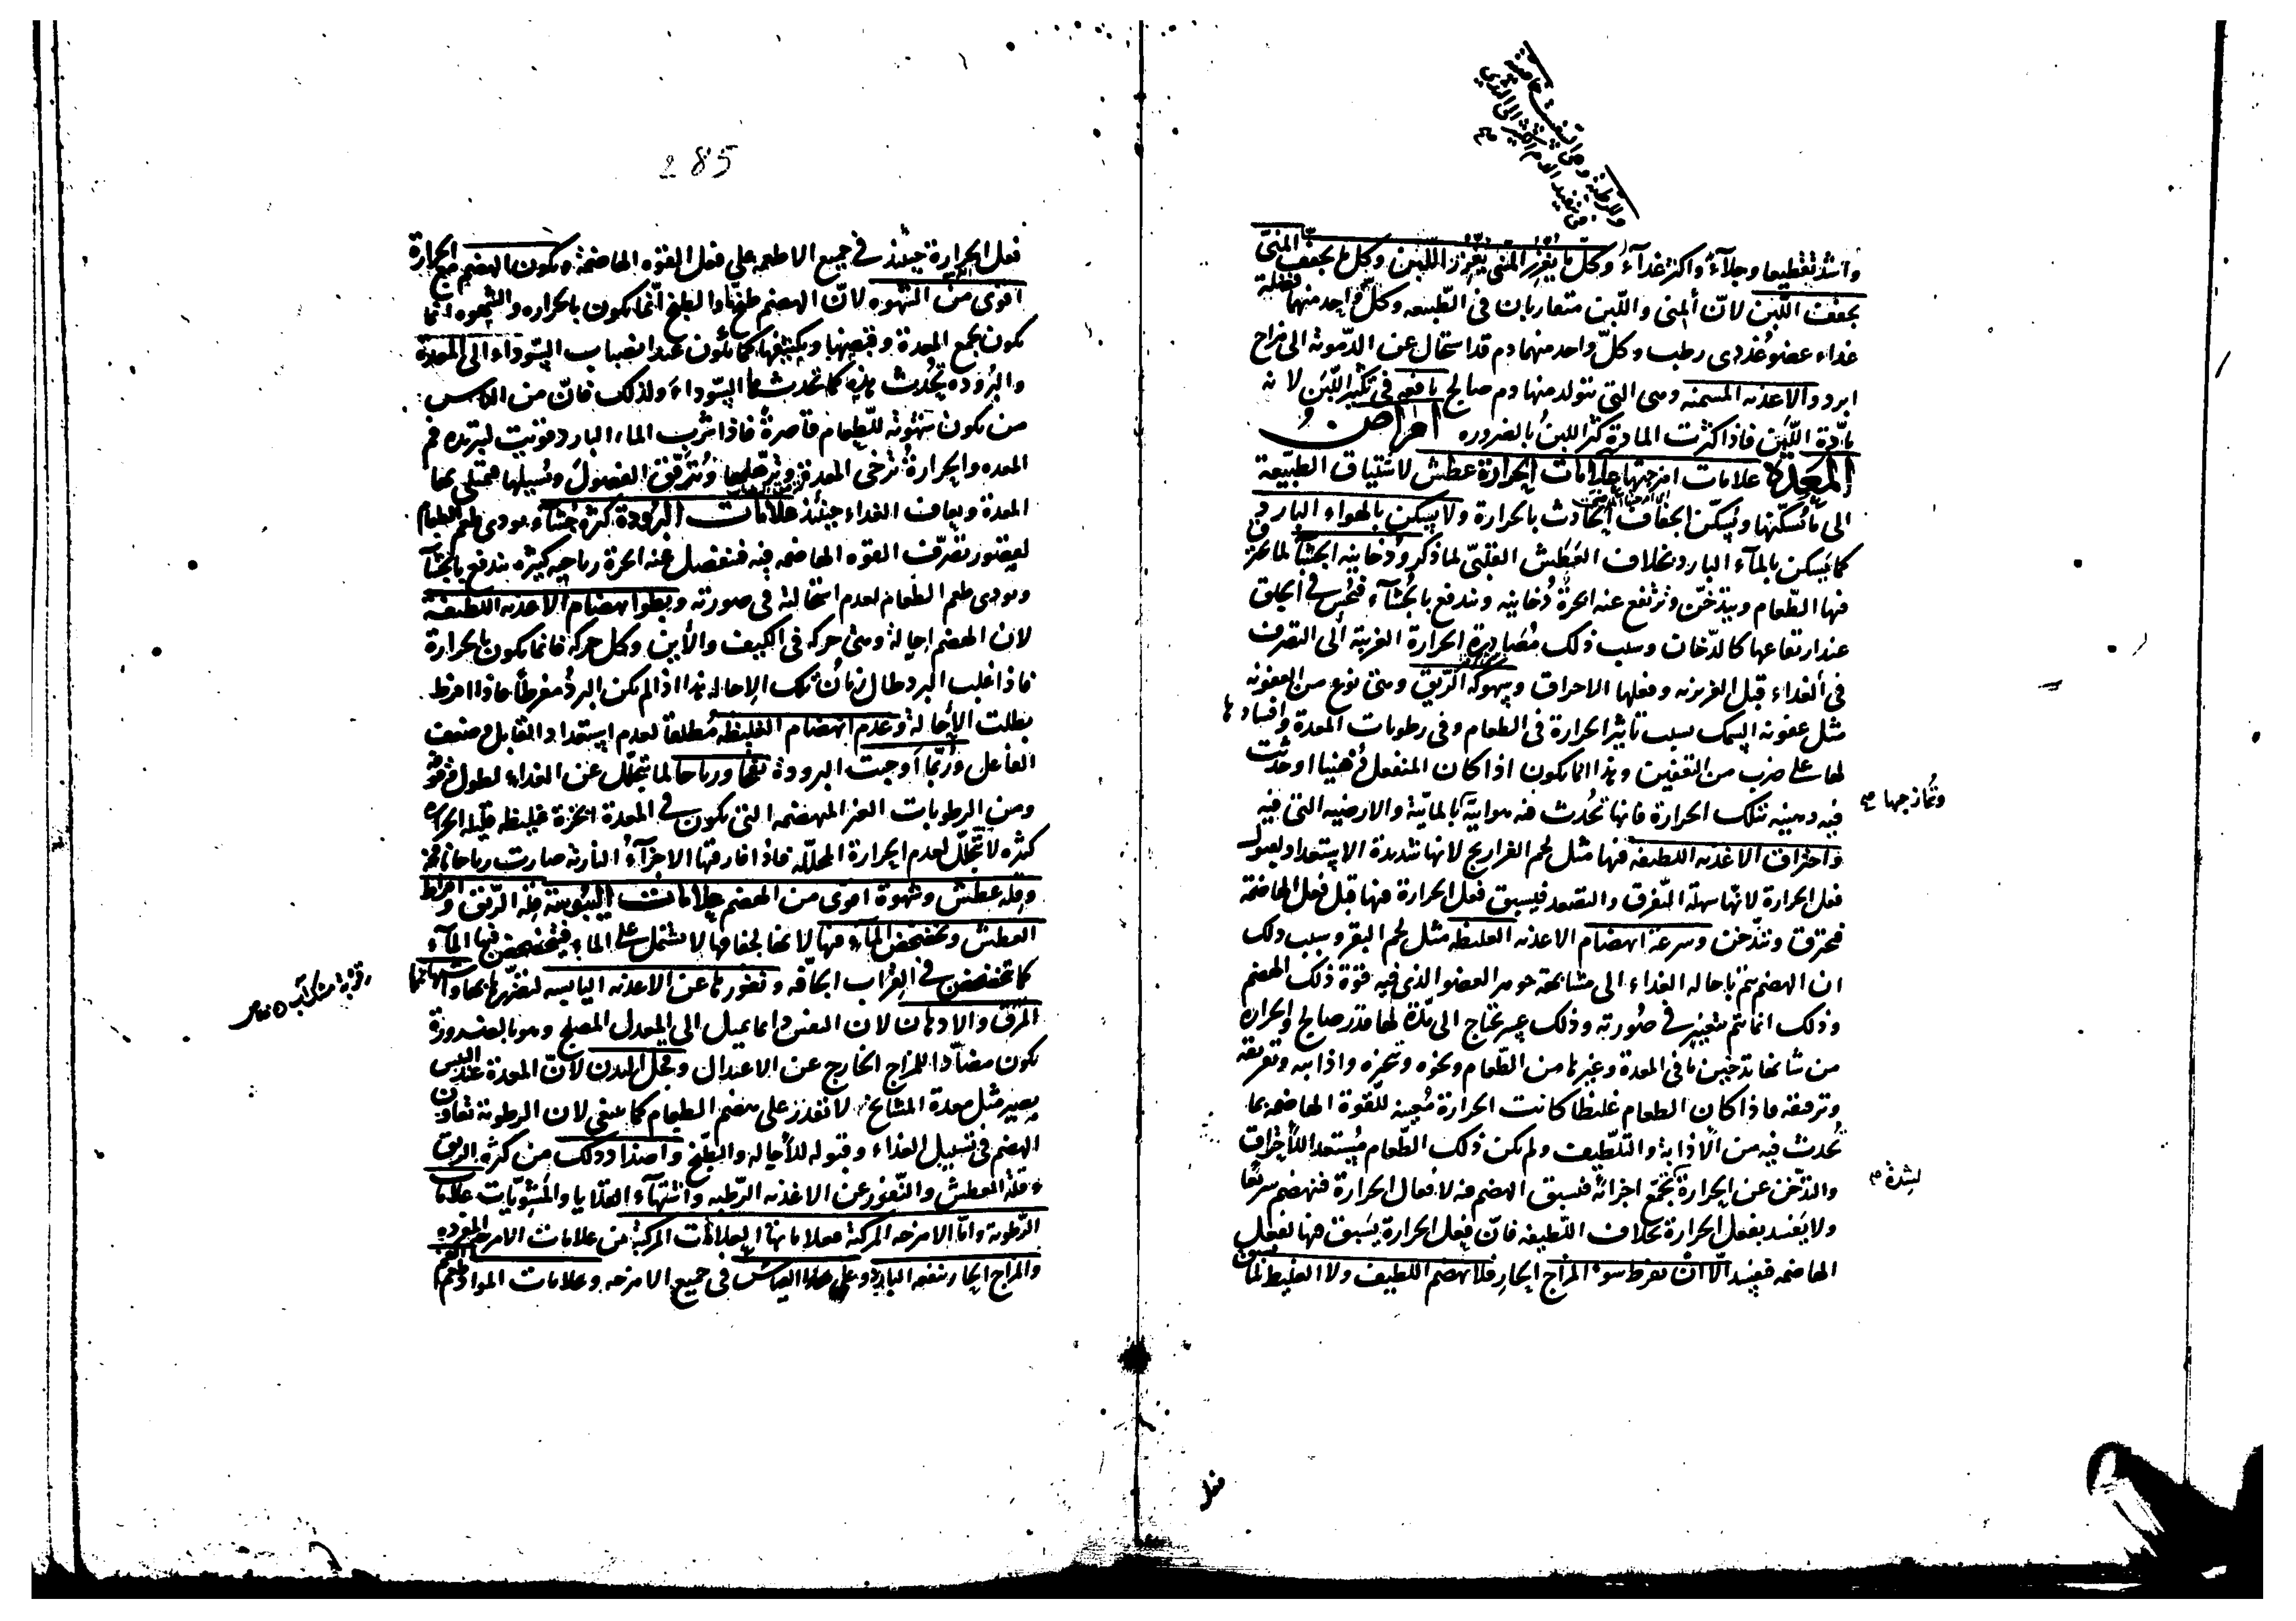 واشد تقطيعا وجلاء واكثر غداء وكل ما يغزر المنى يغزر اللبن وكل ما يجفف المنى
يجفف اللبن لان المنى واللبن متقاربان فى الطبيعه وكل واحد منهما فضلة
غداء عضو غددى رطب وكل واحد منهما دم قد استحال عن الدموية الى مزاج
ابرد والاغذيه المسمنه وهى التى يتولد منها دم صالح نافع فى تكثير اللبن لانه
مادة اللبن فاذا كثرت المادة كثر اللبن بالضروره امراض
المعدة علامات امزجتها علامات الحرارة عطش لاشتياق الطبيعة
الى ما يسكنها ويسكن الجفاف الحادث بالحرارة ولا يسكن بالهواء البارد
كما يسكن بالماء البارد بخلاف العطش القلبى لما ذكر ودخانيه الجشأ لما يحترق
فيها الطعام ويتدخن وترتفع عنه ابخرة دخانيه وتندفع بالجشاء فيحس فى الحلق
عند ارتفاعها كالدخان وسبب ذلك مبادرة الحرارة الغريبة الى التصرف
فى الغداء قبل الغريزيه وفعلها الاحراق وسهوكة الريق وهى نوع من العفونه
مثل عفونه السمك بسبب تاثير الحرارة فى الطعام وفى رطوبات المعدة وافسادها
لها على ضرب من التعفين وهذا انما يكون اذا كان المنفعل دهنيا او حدثت
فيه دهنيه بتلك الحرارة فانها تحدث فيه هوائية بالمائية والارضيه التى فيه
وتمازجها
واحتراق الاغذيه اللطيفه فيها مثل لحم الفراريج لانها شديدة الاستعداد لقبول
فعل الحرارة لانها سهلة التفرق والتصعد فيسبق فعل الحرارة فيها قبل فعل الهاضمة
فيحترق ويتدخن وسرعة انهضام الاغذيه الغليظه مثل لحم البقر وسبب ذلك
ان الهضم يتم باحالة الغداء الى مشابهة جوهر العضو الذى فيه قوة ذلك الهضم
وذلك انما يتم بتغيير فى صورته وذلك عسر يحتاج الى مدة لها قدر صالح والحراره
من شانها تدخين ما فى المعدة وغيرها من الطعام ونحوه وتبخيره واذابه وتفريقه
وترقيقه فاذا كان الطعام غليظا كانت الحرارة معينه للقوة الهاضمه بما
تحدث فيه من الاذابة والتلطيف ولم يكن ذلك الطعام مستعدا للاحتراق
والتدخن عن الحرارة بجمع اجزائه فيسبق الهضم فيه لافعال الحرارة فينهضم سريعا
لشدة
ولا يفسد بفعل الحرارة بخلاف اللطيفه فان فعل الحرارة يسبق فيها لفعل
الهاضمه فيفسد الا ان يفرط سوء المزاج الحار فلا يهضم اللطيف ولا الغليظ
فعل
285
فعل الحرارة حينئذ فى جميع الاطعمه على فعل القوه الهاضمة ويكون الهضم مع الحرارة
اقوى من الشهوه لان الهضم طبخ والطبخ انما يكون بالحراره والشهوه انما
يكون بجمع المعدة وقبضها وتكثيفها كما يكون عند انصباب السوداء الى المعدة
والبروده تحدث هذه كما تحدثها السوداء ولذلك فان من الناس
من يكون شهوته للطعام قاصرة فاذا شرب الماء البارد قويت لتبريده فم
المعده والحرارة ترخى المعدة وترهلها وترقق الفضول وتسيلها فتمتلى بها
المعدة ويعاف الغداء حينئذ علامات البرودة كثرة جشاء يودى طعم الطعام
لقصور تصرف القوه الهاضمه فيه فتنفصل عنه ابخرة رياحيه كثيره تندفع بالجشاء
ويودى طعم الطعام لعدم استحالته فى صورته وبطؤ انهضام الاغذيه اللطيفة
لان الهضم احالة وهى حركة فى الكيف والاين وكل حركة فانما يكون بالحرارة
فاذا غلب البرد طال زمان تلك الاحاله هذا اذا لم يكن البرد مفرطا فاذا افرط
بطلت الاحالة وعدم انهضام الغليظه مطلقا لعدم استعداد القابل وضعف
الفاعل وربما اوجبت البرودة نفخا ورياحا لما يتحلل عن الغداء لطول وقوفه
ومن الرطوبات الغير المنهضمه التى تكون فى المعدة ابخرة غليظه قليله الحرارة
كثيره لا تتحلل لعدم الحرارة المحلله فاذا فارقتها الاجزاء النارية صارت رياحا نافخة
وقله عطش وشهوة اقوى من الهضم علامات اليبوسة قلة الريق وافراط
العطش وتخضخض الماء فيها لانها لجفافها لا تشتمل على الماء فيتخضخض فيها الماء
كما يتخضخض فى القراب الجافه ونفورها عن الاغذيه اليابسه لتضررها بها واشتهائها
المرق والادهان لان العضو دائما يميل الى المعدل المصلح وهو بالضرورة
يكون مضادا للمزاج الخارج عن الاعتدال ونحل البدن لان المعدة عند اليبس
يصير مثل معدة المشايخ لا تقدر على هضم الطعام كما ينبغى لان الرطوبة تعاون
الهضم فى تسييل الغداء وقبوله للاحالة والطبخ واضداد ذلك من كثرة الريق
وقلة العطش والنفور عن الاغذيه الرطبه واشتهاء القلايا والمشويات علامات
الرطوبة واما الامزجه المركبة فعلاماتها العلامات المركبة من علامات الامزجه المفرده
والمزاج الحار ينفعه البارد وعلى هذا القياس فى جميع الامزجه وعلامات المواد طعم